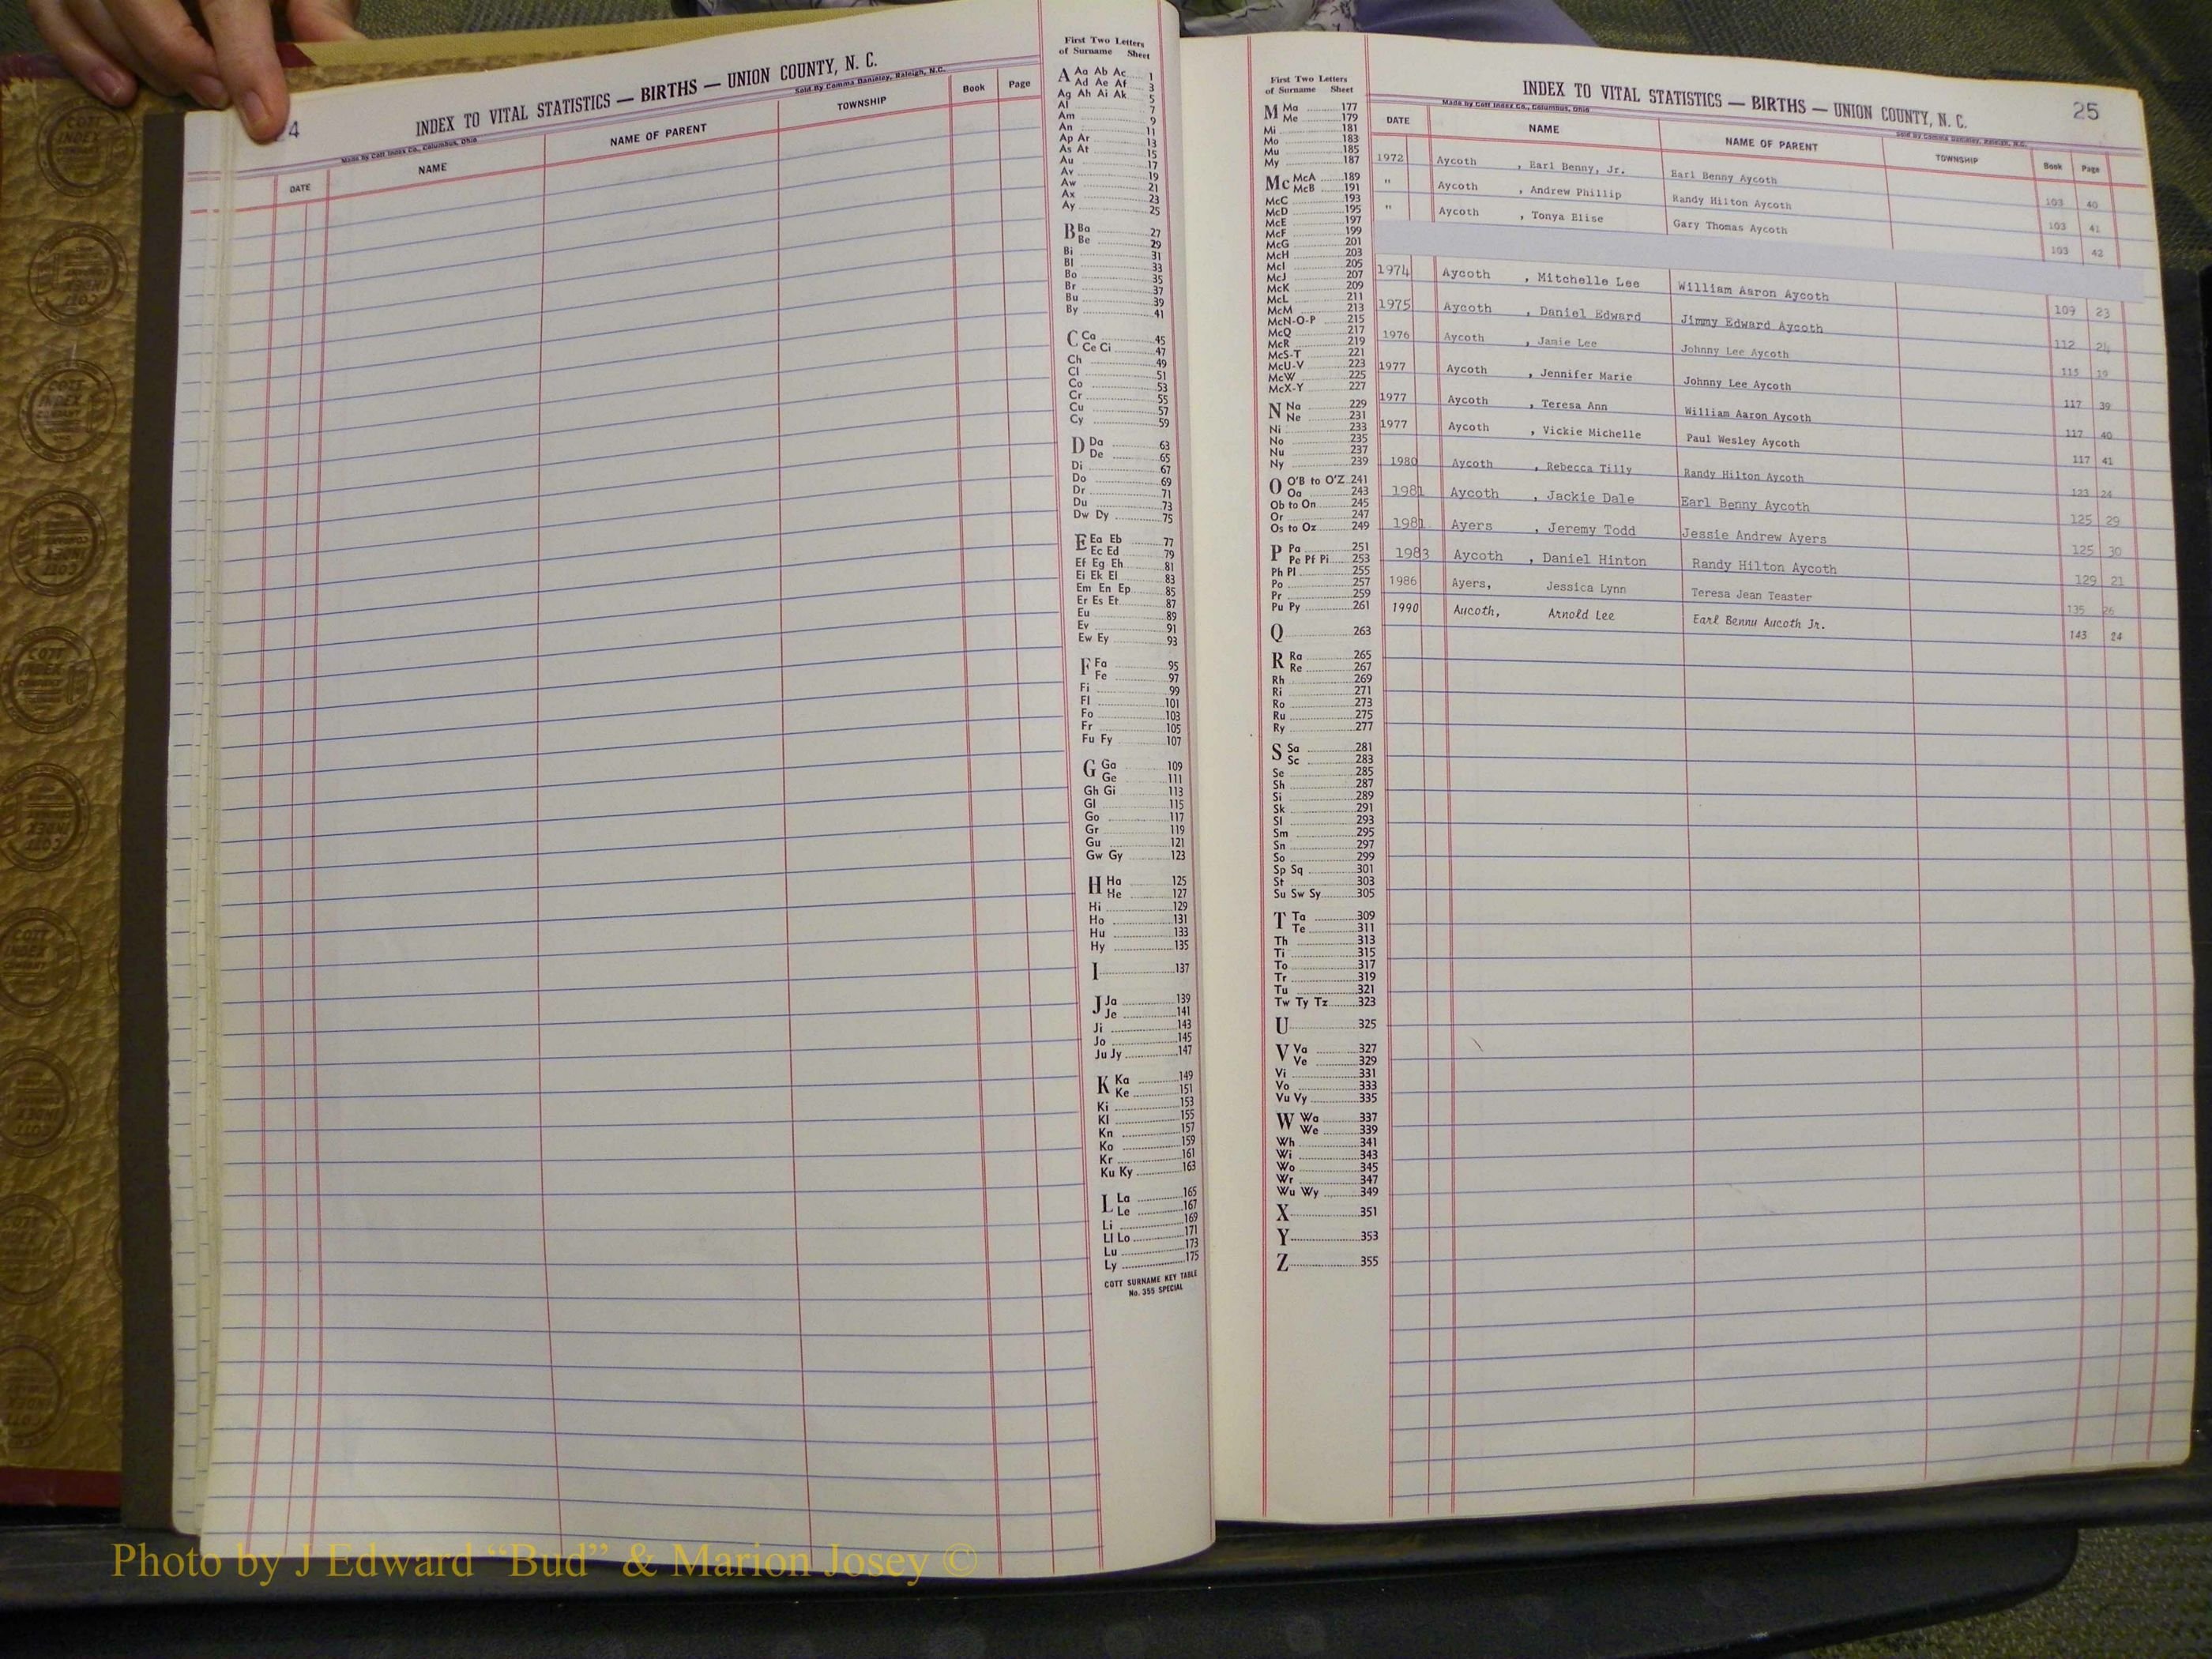 24
INDEX TO VITAL STATISTICS — BIRTHS — UNION COUNTY, N. C.
Made by Cott Index Co., Columbus, Ohio
Sold By Comma Danieley, Raleigh, N.C.
DATE NAME NAME OF PARENT TOWNSHIP Book Page
First Two Letters
of Surname Sheet
A Aa Ab Ac 1
Ad Ae Af 3
Ag Ah Ai Ak 5
Al 7
Am 9
An 11
Ap Ar 13
As At 15
Au 17
Av 19
Aw 21
Ax 23
Ay 25
B Ba 27
Be 29
Bi 31
Bl 33
Bo 35
Br 37
Bu 39
By 41
C Ca 45
Ce Ci 47
Ch 49
Cl 51
Co 53
Cr 55
Cu 57
Cy 59
D Da 63
De 65
Di 67
Do 69
Dr 71
Du 73
Dw Dy 75
E Ea Eb 77
Ec Ed 79
Ef Eg Eh 81
Ei Ek El 83
Em En Ep 85
Er Es Et 87
Eu 89
Ev 91
Ew Ey 93
F Fa 95
Fe 97
Fi 99
Fl 101
Fo 103
Fr 105
Fu Fy 107
G Ga 109
Ge 111
Gh Gi 113
Gl 115
Go 117
Gr 119
Gu 121
Gw Gy 123
H Ha 125
He 127
Hi 129
Ho 131
Hu 133
Hy 135
I 137
J Ja 139
Je 141
Ji 143
Jo 145
Ju Jy 147
K Ka 149
Ke 151
Ki 153
Kl 155
Kn 157
Ko 159
Kr 161
Ku Ky 163
L La 165
Le 167
Li 169
Ll Lo 171
Lu 173
Ly 175
COTT SURNAME KEY TABLE
No. 355 SPECIAL
First Two Letters
of Surname Sheet
M Ma 177
Me 179
Mi 181
Mo 183
Mu 185
My 187
Mc McA 189
McB 191
McC 193
McD 195
McE 197
McF 199
McG 201
McH 203
McI 205
McJ 207
McK 209
McL 211
McM 213
McN-O-P 215
McQ 217
McR 219
McS-T 221
McU-V 223
McW 225
McX-Y 227
N Na 229
Ne 231
Ni 233
No 235
Nu 237
Ny 239
O O'B to O'Z 241
Oa 243
Ob to On 245
Or 247
Os to Oz 249
P Pa 251
Pe Pf Pi 253
Ph Pl 255
Po 257
Pr 259
Pu Py 261
Q 263
R Ra 265
Re 267
Rh 269
Ri 271
Ro 273
Ru 275
Ry 277
S Sa 281
Sc 283
Se 285
Sh 287
Si 289
Sk 291
Sl 293
Sm 295
Sn 297
So 299
Sp Sq 301
St 303
Su Sw Sy 305
T Ta 309
Te 311
Th 313
Ti 315
To 317
Tr 319
Tu 321
Tw Ty Tz 323
U 325
V Va 327
Ve 329
Vi 331
Vo 333
Vu Vy 335
W Wa 337
We 339
Wh 341
Wi 343
Wo 345
Wr 347
Wu Wy 349
X 351
Y 353
Z 355
INDEX TO VITAL STATISTICS — BIRTHS — UNION COUNTY, N. C. 25
Made by Cott Index Co., Columbus, Ohio
Sold By Comma Danieley, Raleigh, N.C.
DATE NAME NAME OF PARENT TOWNSHIP Book Page
1972 Aycoth , Earl Benny, Jr. Earl Benny Aycoth 103 40
" Aycoth , Andrew Phillip Randy Hilton Aycoth 103 41
" Aycoth , Tonya Elise Gary Thomas Aycoth 103 42
1974 Aycoth , Mitchelle Lee William Aaron Aycoth 109 23
1975 Aycoth , Daniel Edward Jimmy Edward Aycoth 112 24
1976 Aycoth , Janie Lee Johnny Lee Aycoth 115 19
1977 Aycoth , Jennifer Marie Johnny Lee Aycoth 117 39
1977 Aycoth , Teresa Ann William Aaron Aycoth 117 40
1977 Aycoth , Vickie Michelle Paul Wesley Aycoth 117 41
1980 Aycoth , Rebecca Tilly Randy Hilton Aycoth 123 24
1981 Aycoth , Jackie Dale Earl Benny Aycoth 125 29
1981 Ayers , Jeremy Todd Jessie Andrew Ayers 125 30
1983 Aycoth , Daniel Hinton Randy Hilton Aycoth 129 21
1986 Ayers, Jessica Lynn Teresa Jean Teaster 135 26
1990 Aycoth, Arnold Lee Earl Benny Aycoth Jr. 143 24
Photo by J Edward “Bud” & Marion Josey ©